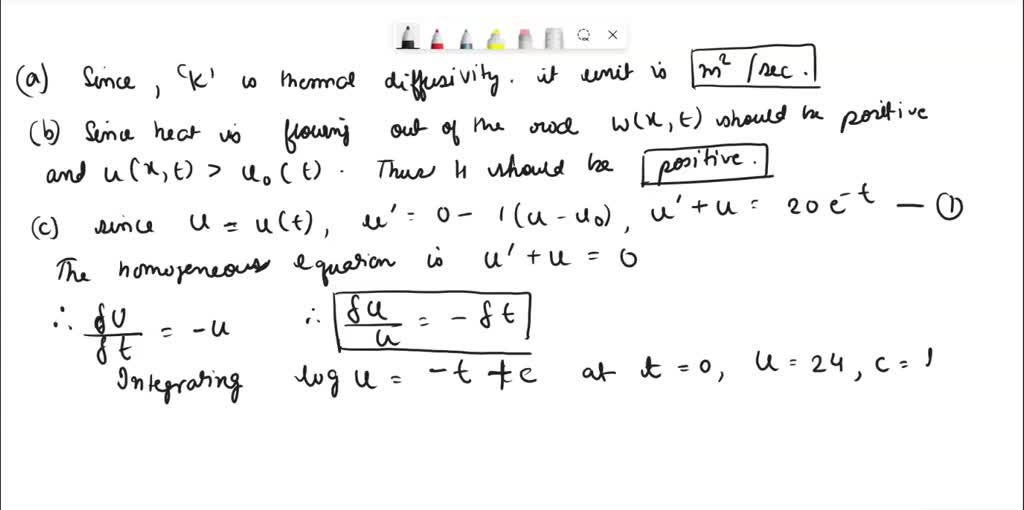 (a) Since, 'k' is thermal diffusivity. it unit is m² /sec.
(b) Since heat is flowing out of the rod w(x,t) should be positive
and u(x,t) > u₀(t). Thus h should be positive.
(c) since u = u(t), u' = 0 - 1(u - u₀), u' + u = 20e^-t — ①
The homogeneous equation is u' + u = 0
∴ δU/δt = -u ∴ δu/u = - δt
Integrating log u = -t + c at t = 0, u = 24, c =